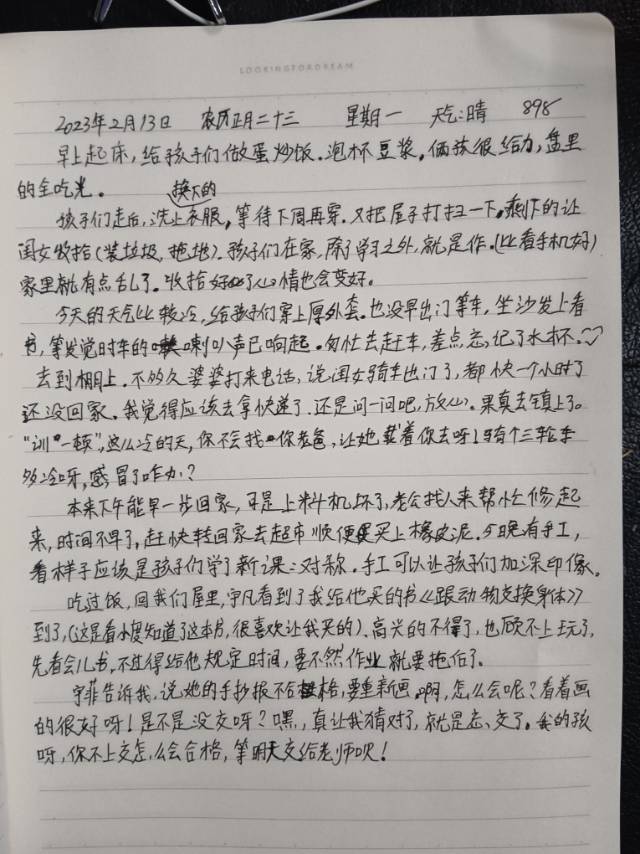 LOOKINGFORDREAM
2023年2月13日 农历正月二十三 星期一 天气:晴 898
早上起床,给孩子们做蛋炒饭。泡杯豆浆。俩孩很给力,盘里
的全吃光。
换下的
孩子们走后,洗上衣服,等待下周再穿。又把屋子打扫一下,剩下的让
闺女收拾(装垃圾,拖地)。孩子们在家,除了学习之外,就是作。(比看手机好)
家里就有点乱了。收拾好了心情也会变好。
今天的天气比较冷,给孩子们穿上厚外套。也没早出门等车,坐沙发上看
书,等发觉时车的喇叭声已响起。匆忙去赶车,差点忘记了水杯。
去到棚上。不多久婆婆打来电话,说闺女骑车出门了,都快一个小时了
还没回家。我觉得应该去拿快递了,还是问一问吧,放心。果真去镇上了。
“训一顿”,这么冷的天,你不会找你老爸,让她载着你去呀!骑个三轮车
多冷呀,感冒了咋办?
本来下午能早一步回家,可是上料机坏了,老公找人来帮忙修起
来,时间不早了,赶快转回家去超市顺便买上橡皮泥。今晚有手工,
看样子应该是孩子们学了新课:对称。手工可以让孩子们加深印像。
吃过饭,回我们屋里,宇凡看到了我给他买的书《跟动物交换身体》
到了,(这是看小度知道了这本书,很喜欢让我买的)、高兴的不得了,也顾不上玩了,
先看会儿书,不过得给他规定时间,要不然作业就要拖后了。
宇菲告诉我,说她的手抄报不合格,要重新画。啊,怎么会呢?看着画
的很好呀!是不是没交呀?嘿,真让我猜对了,就是忘交了。我的孩
呀,你不上交怎么会合格,等明天交给老师吹!